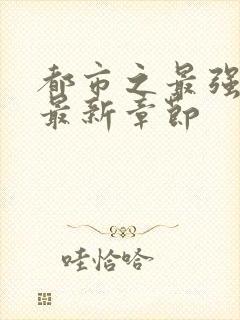 都市之最强
最新章节
哇恰哈